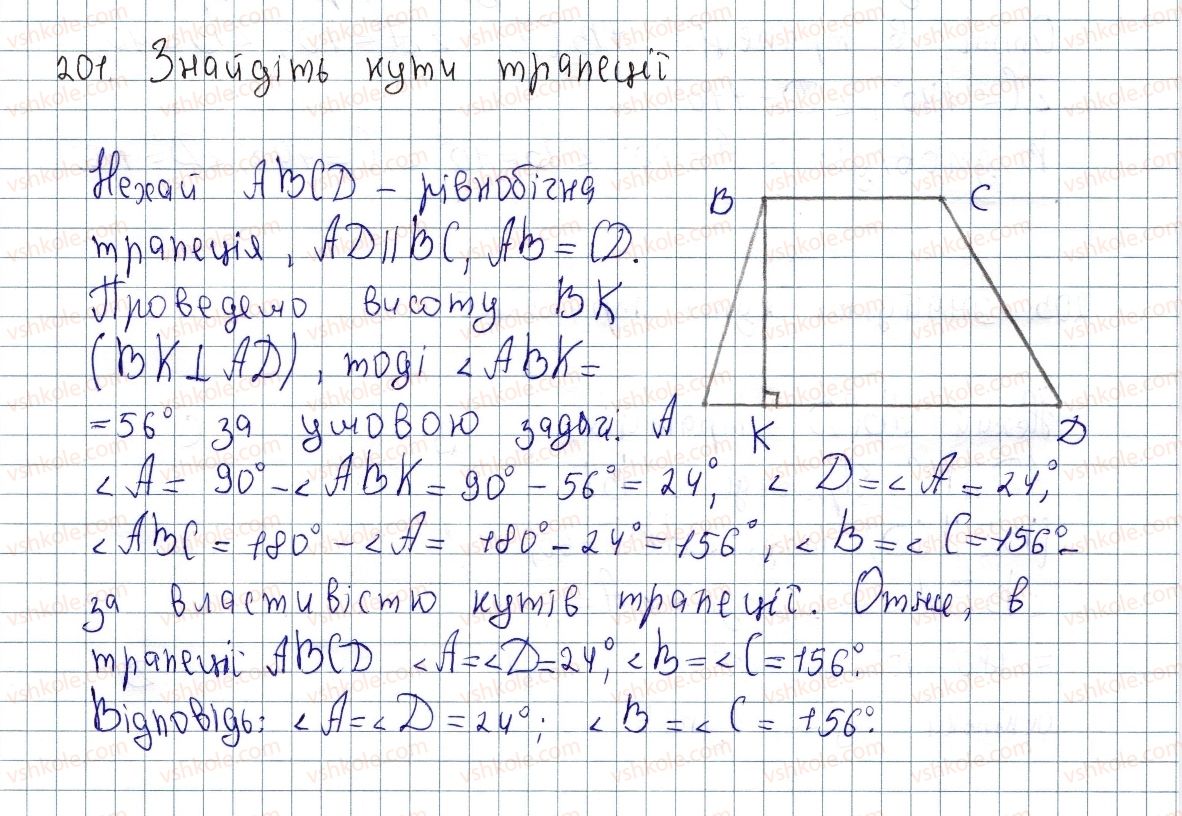 201. Знайдіть кути трапеції
Нехай ABCD – рівнобічна
трапеція, AD||BC, AB = CD.
Проведемо висоту BK
(BK⊥AD), тоді <ABK=
=56° за умовою задачі.
B C
A K D
<A= 90° - <ABK = 90° - 56° = 24°, <D = <A = 24°,
<ABC = 180° - <A = 180° - 24° = 156°, <B = <C = 156° -
за властивістю кутів трапеції. Отже, в
трапеції ABCD <A = <D = 24°, <B = <C = 156°.
Відповідь: <A = <D = 24°; <B = <C = 156°.
vshkole.com